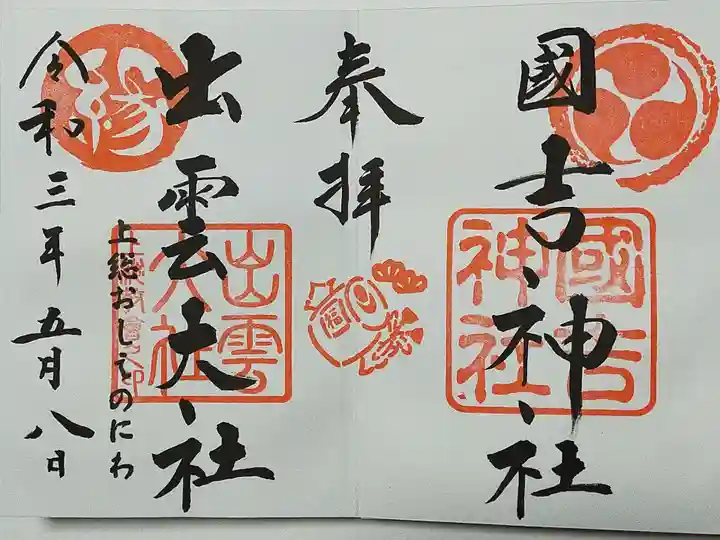 國吉神社
國吉神社
奉拝
福
出雲大社
出雲大社
上総おしえのにわ
令和三年五月八日
縁